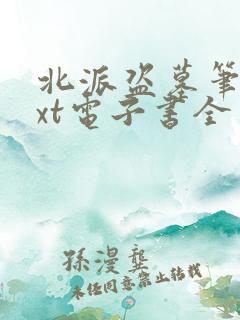 北派盗墓笔
xt电子书全
孫漫龚
未经同意禁止转载